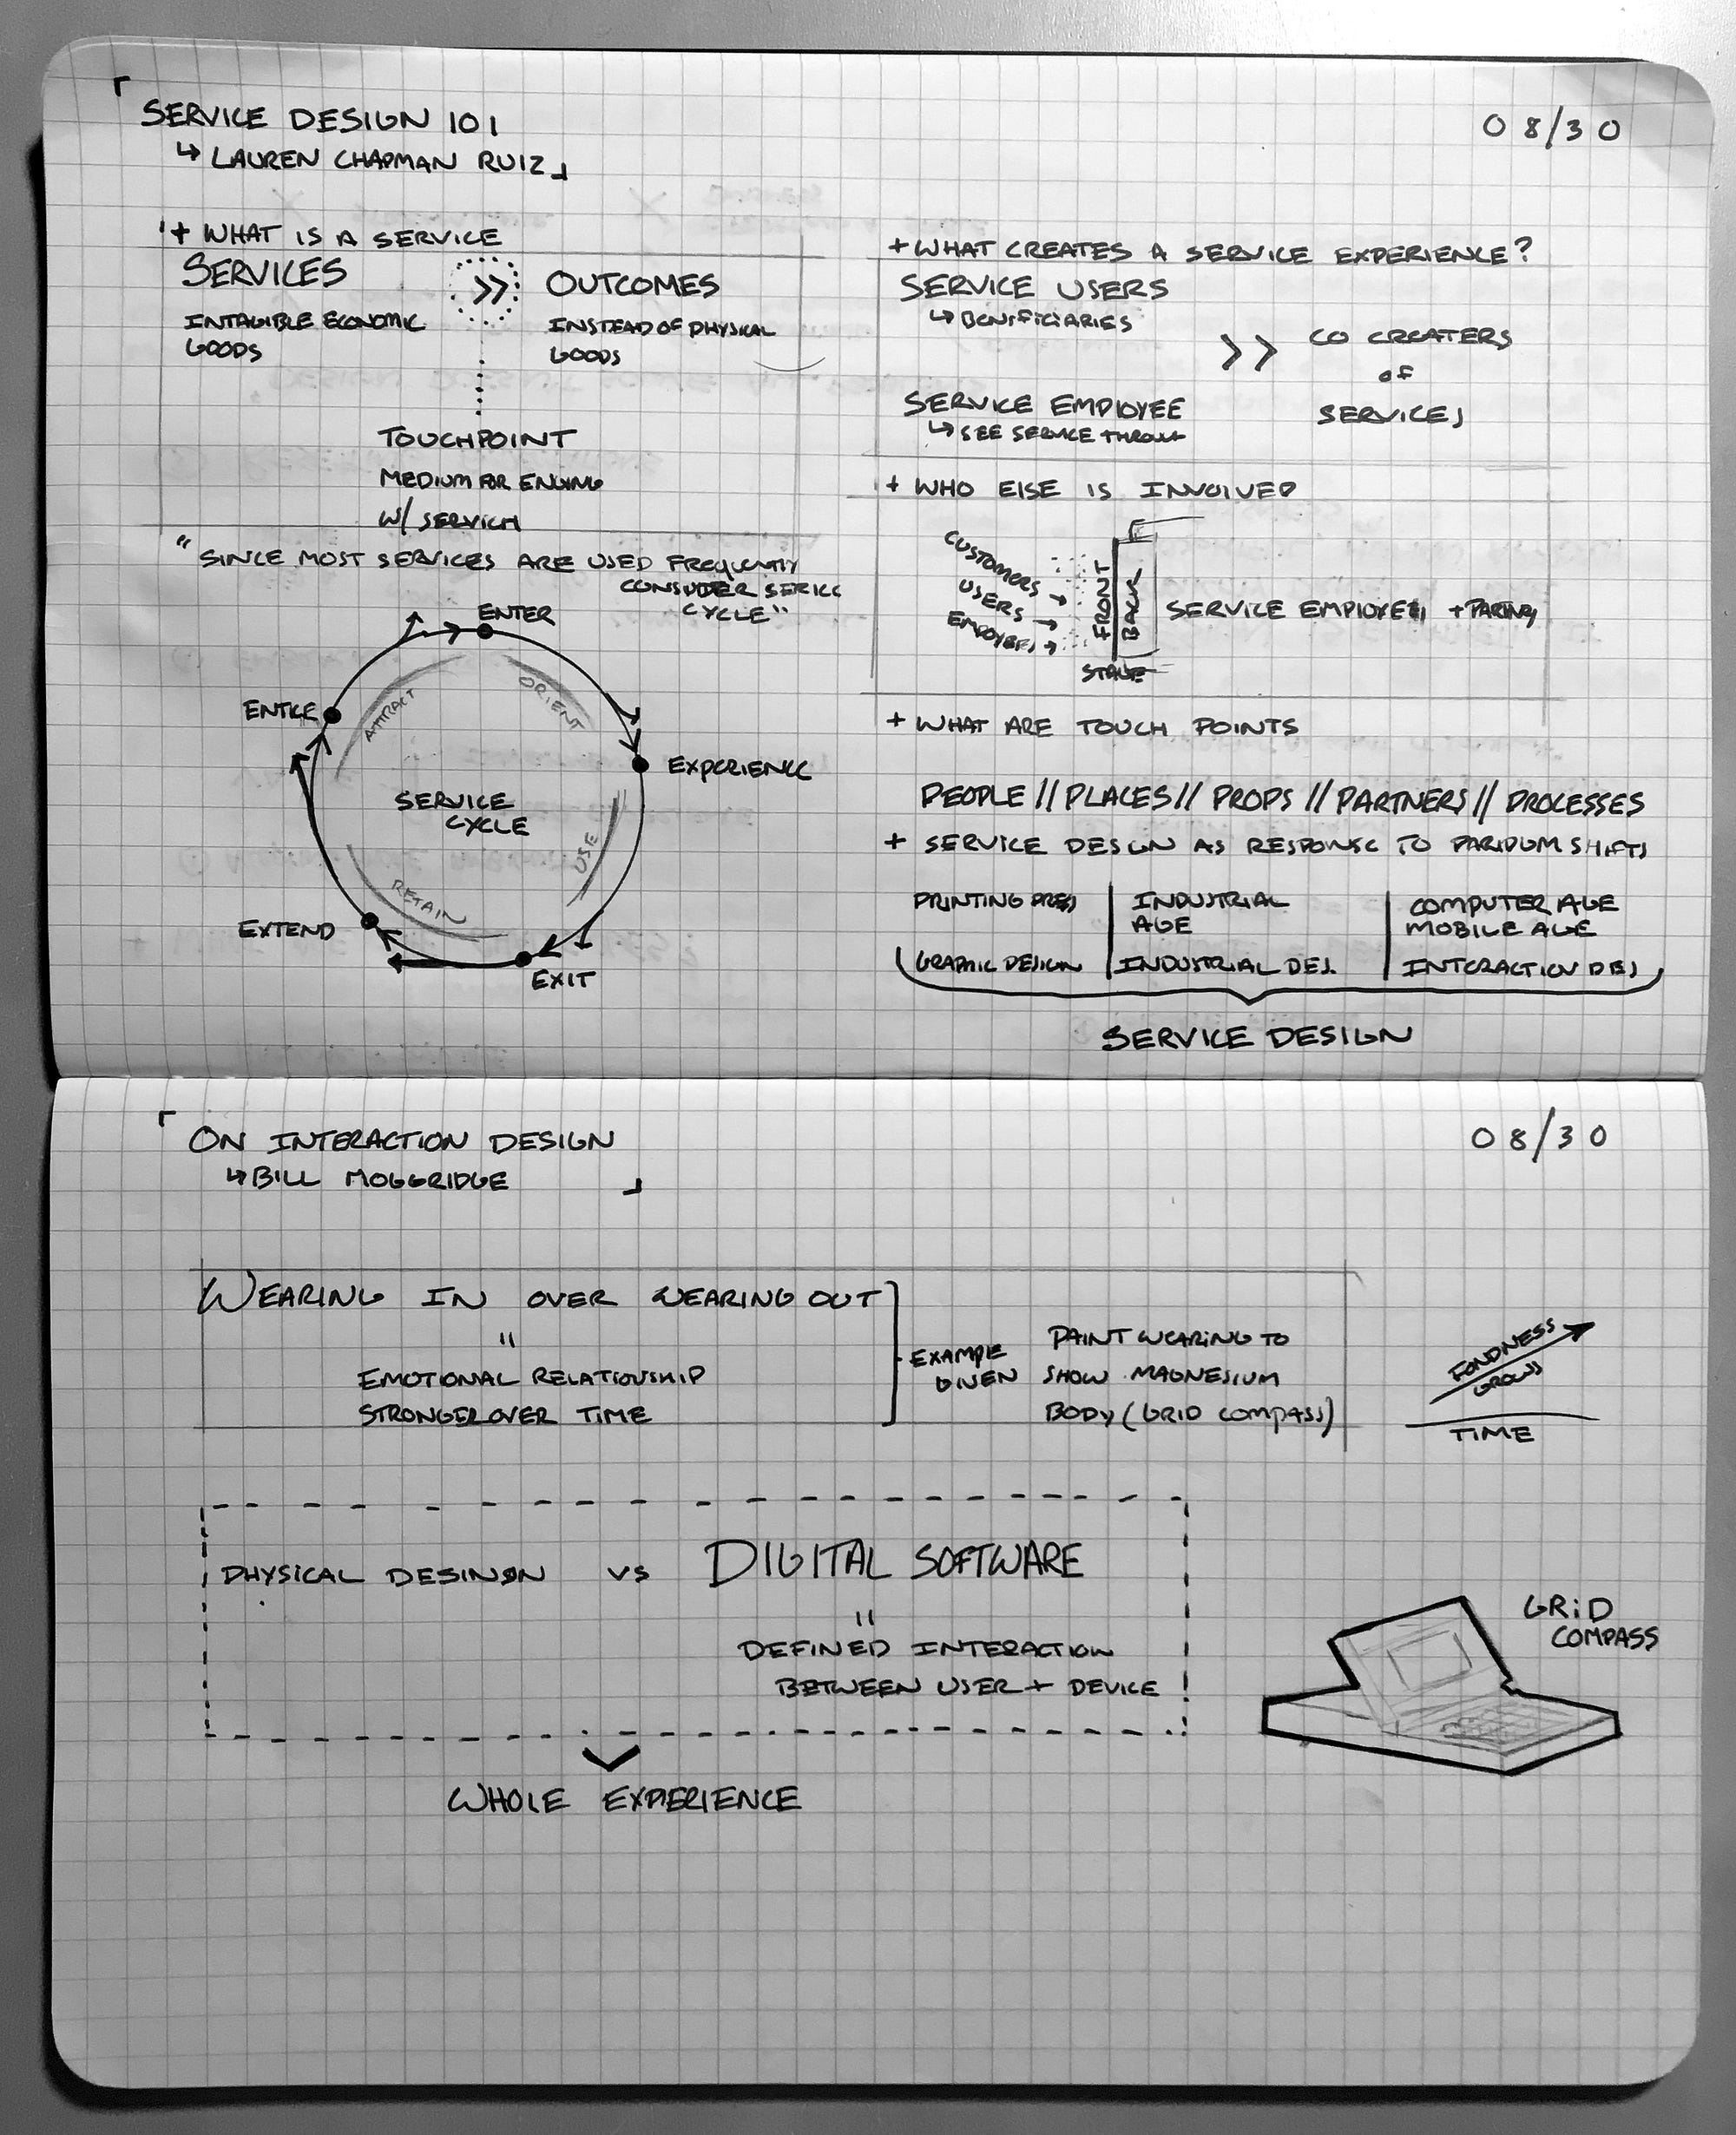 SERVICE DESIGN 101
↳ LAUREN CHAPMAN RUIZ
08/30
+ WHAT IS A SERVICE
SERVICES >> OUTCOMES
INTAGIBLE ECONOMIC GOODS
INSTEAD OF PHYSICAL GOODS
TOUCHPOINT
MEDIUM FOR
W/
"SINCE MOST SERVICES ARE USED FREQUENTLY
CONSIDER
CYCLE"
ENTER
ORIENT
EXPERIENCE
USE
EXIT
RETAIN
EXTEND
ENTICE
ATTRACT
SERVICE
CYCLE
+ WHAT CREATES A SERVICE EXPERIENCE?
SERVICE USERS
↳ BENIFICIARIES
SERVICE EMPLOYEE
↳ SEE SERVICE
>> CO CREATERS
OF
SERVICES
+ WHO ELSE IS INVOLVED
CUSTOMERS
USERS →
EMPLOYEES →
FRONT
BACK
STAGE
SERVICE EMPLOYEES
+ WHAT ARE TOUCH POINTS
PEOPLE // PLACES // PROPS // PARTNERS // PROCESSES
+ SERVICE DESIGN AS RESPONSE TO SHIFTS
PRINTING PRESS
GRAPHIC DESIGN
INDUSTRIAL
AGE
INDUSTRIAL DES.
COMPUTER AGE
MOBILE AGE
INTERACTION DES
SERVICE DESIGN
ON INTERACTION DESIGN
↳ BILL MOGGRIDGE
08/30
WEARING IN OVER WEARING OUT
"
EMOTIONAL RELATIONSHIP
STRONGER OVER TIME
EXAMPLE
GIVEN
PAINT WEARING TO
SHOW MAGNESIUM
BODY (GRID COMPASS)
FONDNESS
GROWS
TIME
PHYSICAL VS DIGITAL SOFTWARE
"
DEFINED INTERACTION
BETWEEN USER + DEVICE
WHOLE EXPERIENCE
GRiD
COMPASS